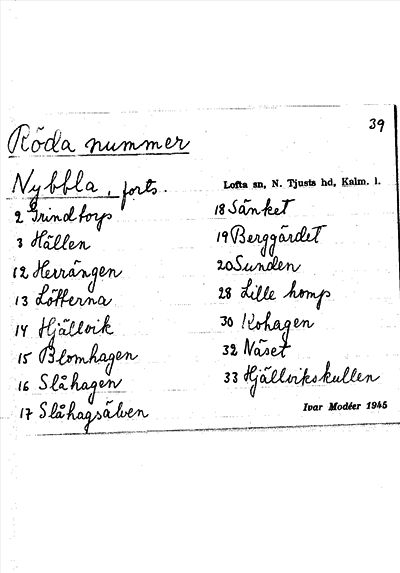 39
Röda nummer
Nybbla, forts.
Lofta sn, N. Tjusts hd, Kalm. l.
2 Grindtorp
3 Hällen
12 Herrängen
13 Lötterna
14 Hjällvik
15 Blomhagen
16 Slåhagen
17 Slåhagsälven
18 Sänket
19 Berggärdet
20 Sunden
28 Lille homp
30 Kohagen
32 Näset
33 Hjällvikskullen
Ivar Modéer 1945